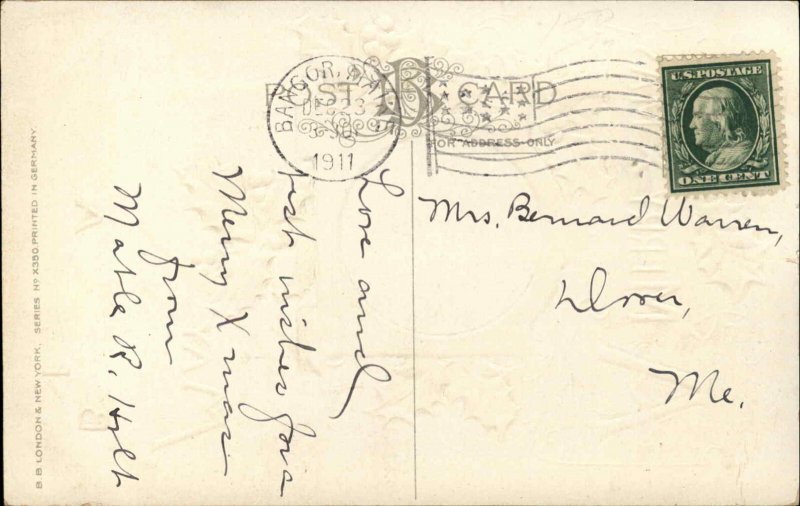 POST CARD
BB
FOR ADDRESS ONLY
BANGOR, MAINE
DEC 23
1911
U.S. POSTAGE
ONE CENT
Love and
best wishes for a
Merry Xmas
from
Mable R. Holt
Mrs. Bernard Warren,
Dover,
Me.
B. B. LONDON & NEW YORK. SERIES No X350. PRINTED IN GERMANY.